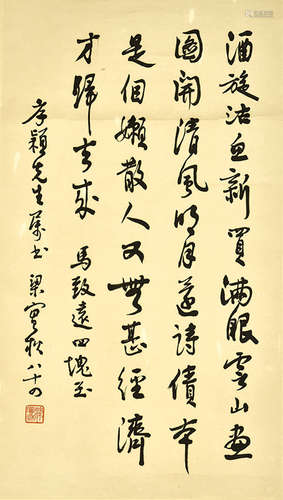 酒旋沽魚新買滿眼雲山畫
圖開清風明月還詩債本
是個嬾散人又無甚經濟
才歸去來 馬致遠四塊玉
穎先生屬書 梁實秋 八十四